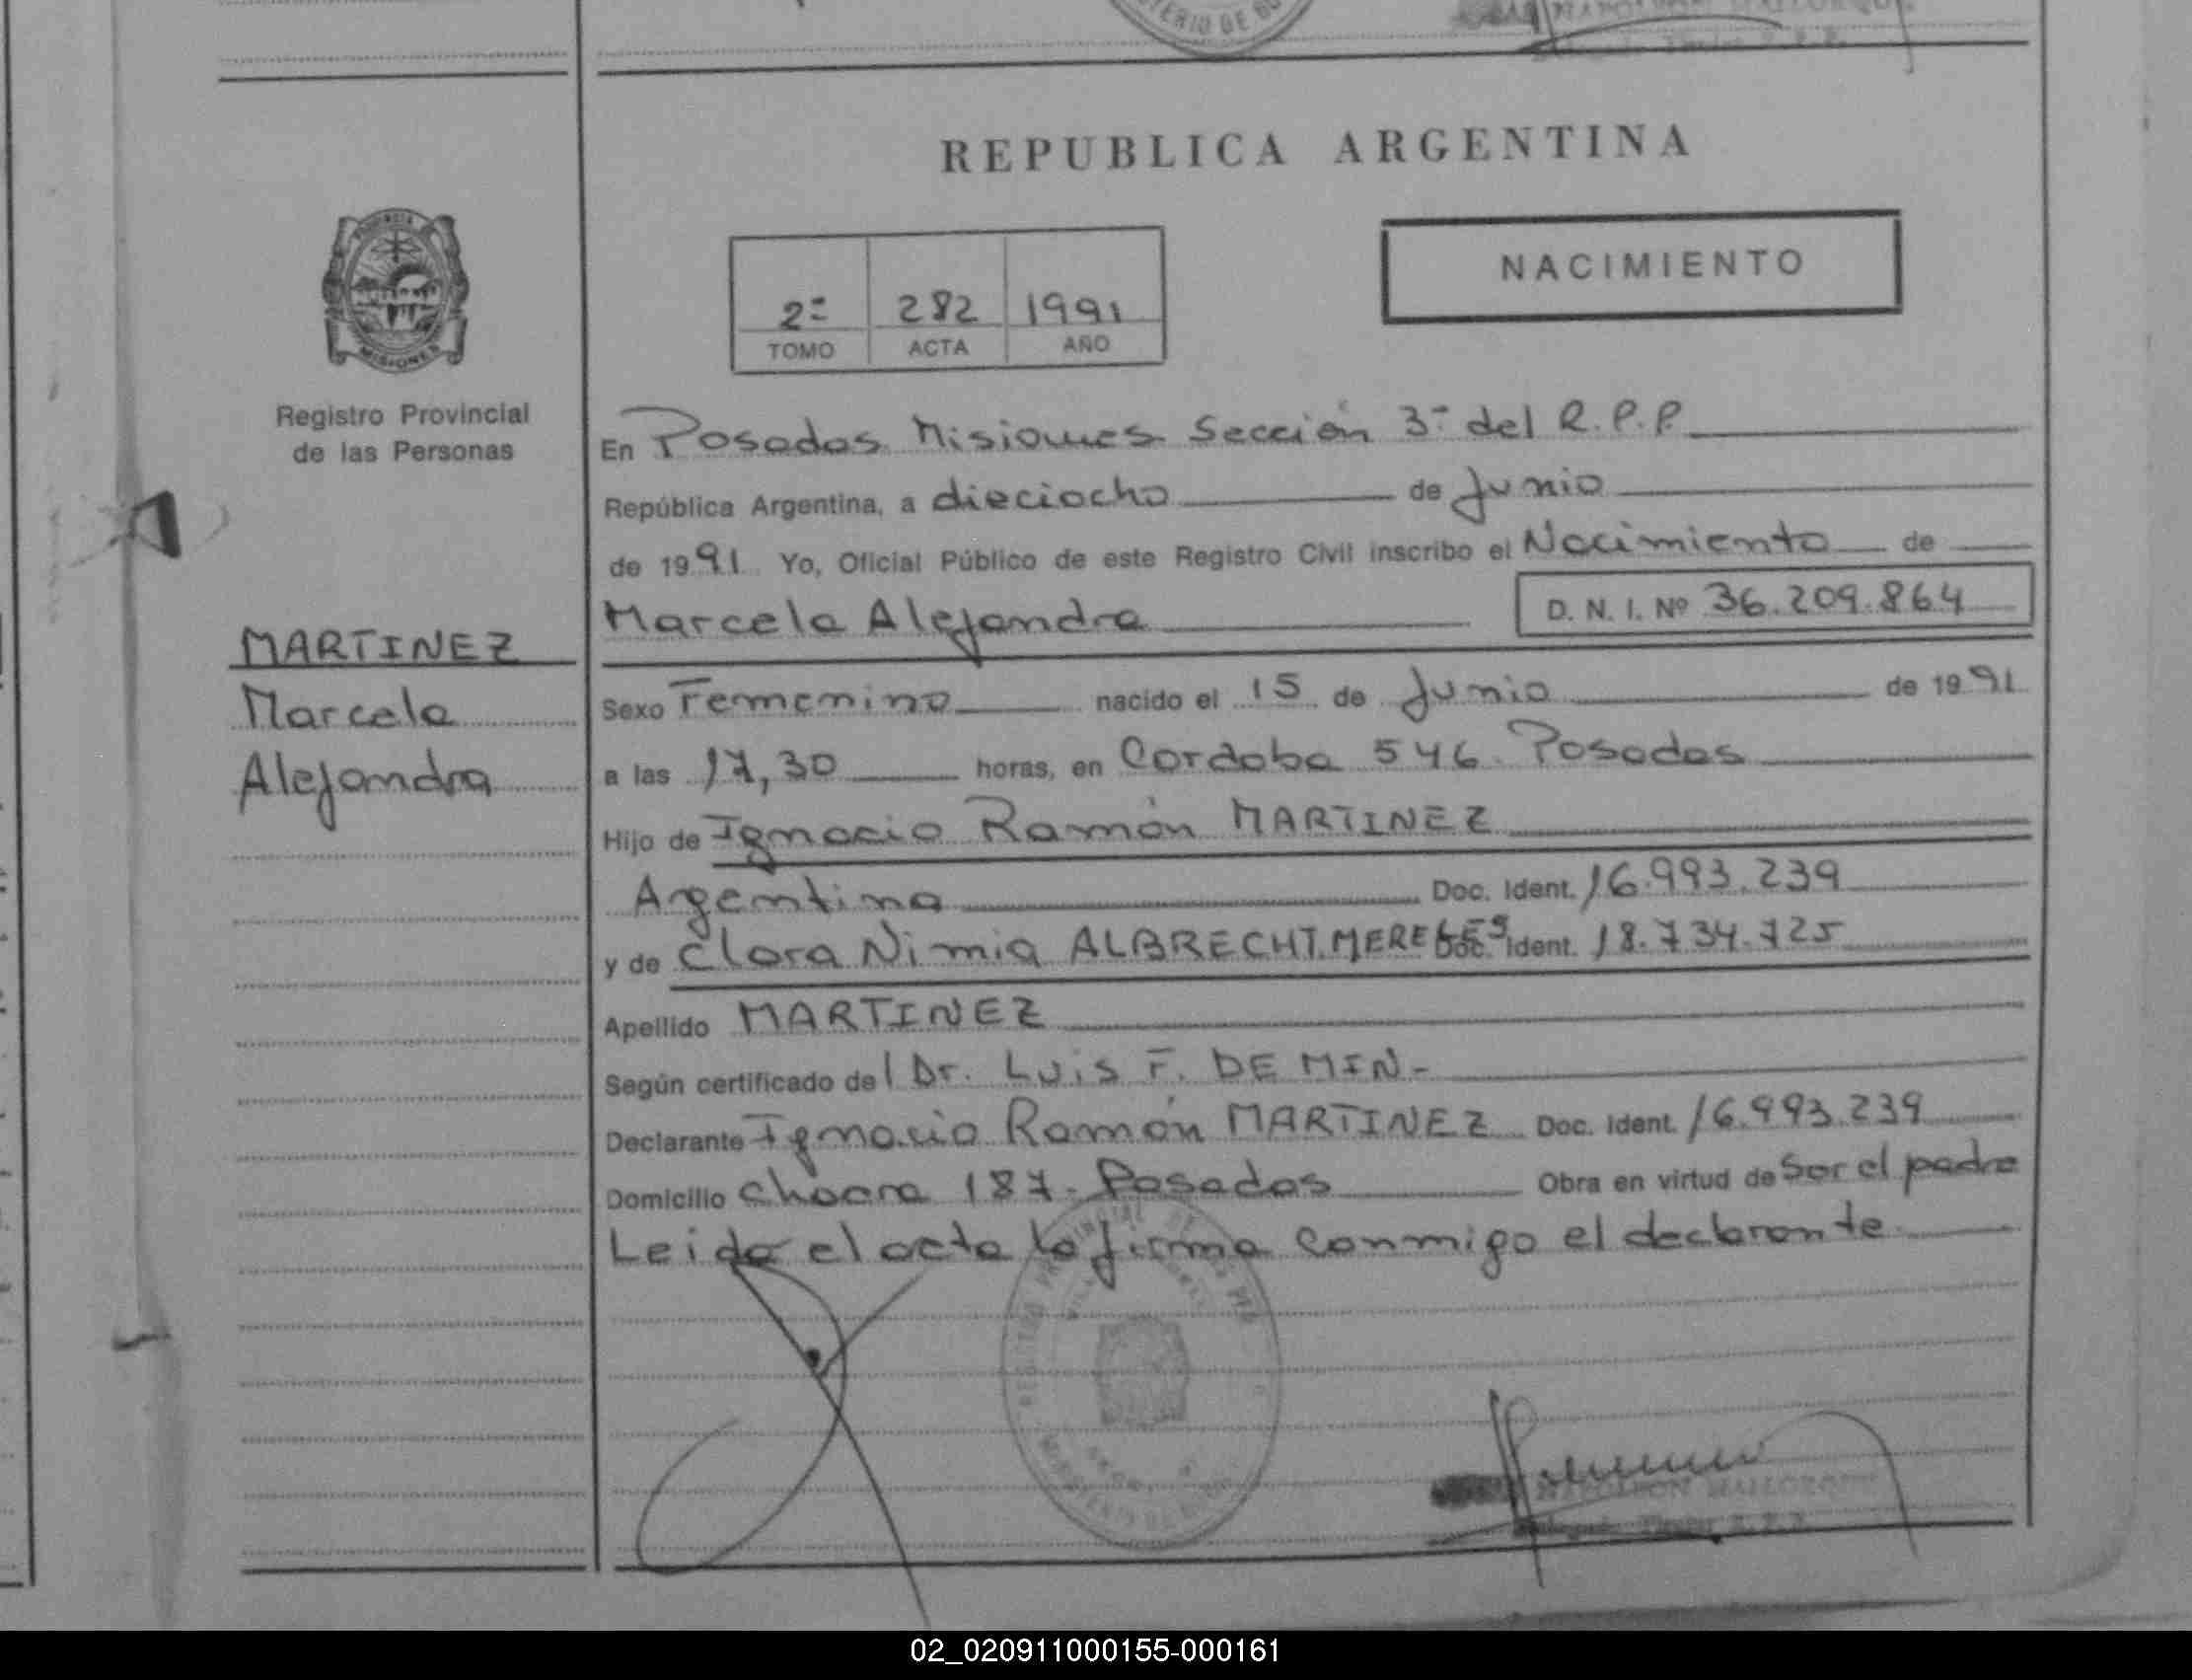 REPUBLICA ARGENTINA
NACIMIENTO
2º 282 1991
TOMO ACTA AÑO
PROVINCIA
MISIONES
Registro Provincial
de las Personas
MARTINEZ
Marcela
Alejandra
En Posadas Misiones Sección 3ª del R.P.P.
República Argentina, a dieciocho de Junio
de 1991 Yo, Oficial Público de este Registro Civil inscribo el Nacimiento de
Marcela Alejandra D. N. I. Nº 36.209.864
Sexo Femenino nacido el 15 de Junio de 1991
a las 17,30 horas, en Cordoba 546. Posadas
Hijo de Ignacio Ramón MARTINEZ
Argentino Doc. Ident. 16.993.239
y de Clara Nimia ALBRECHT.MERELES Doc. Ident. 18.734.725
Apellido MARTINEZ
Según certificado del Dr. Luis F. DE MIN-
Declarante Ignacio Ramón MARTINEZ Doc. Ident. 16.993.239
Domicilio Chacra 187- Posadas Obra en virtud de Ser el padre
Leida el acta la firma conmigo el declarante
02_020911000155-000161